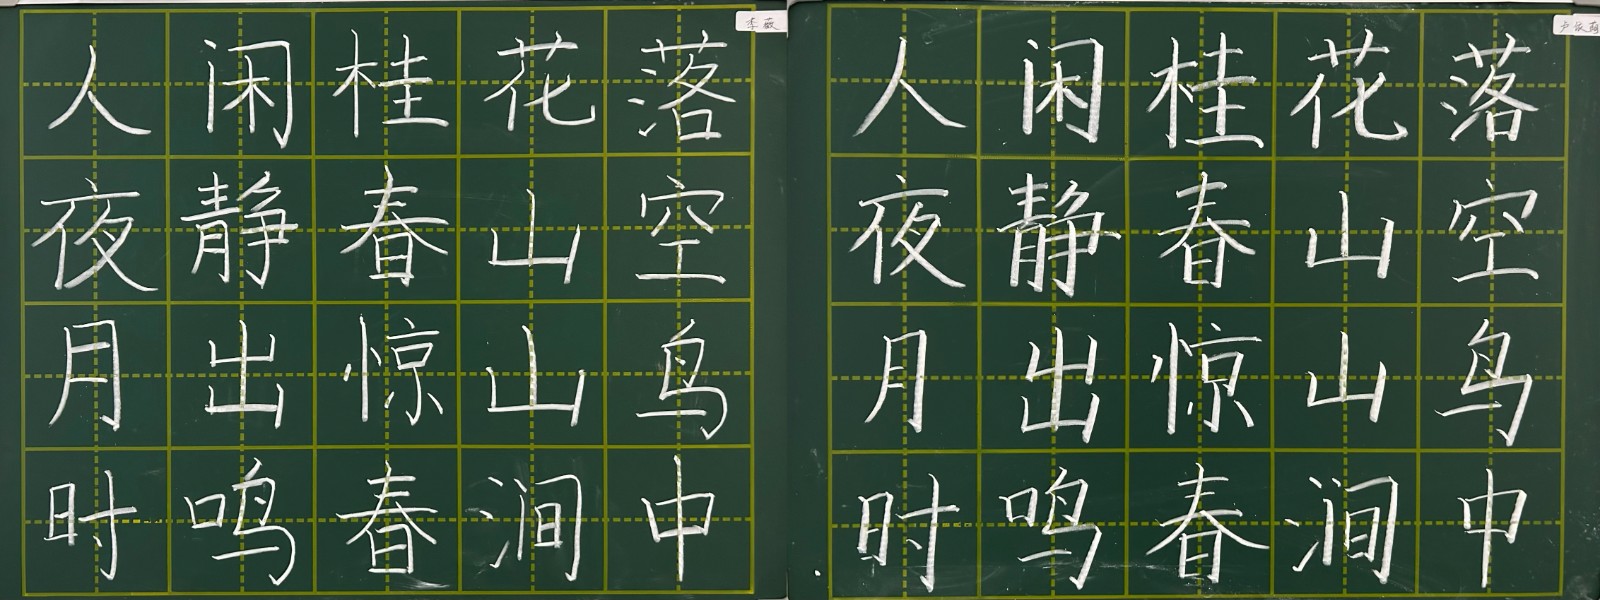 李薇
人闲桂花落
夜静春山空
月出惊山鸟
时鸣春涧中
人闲桂花落
夜静春山空
月出惊山鸟
时鸣春涧中